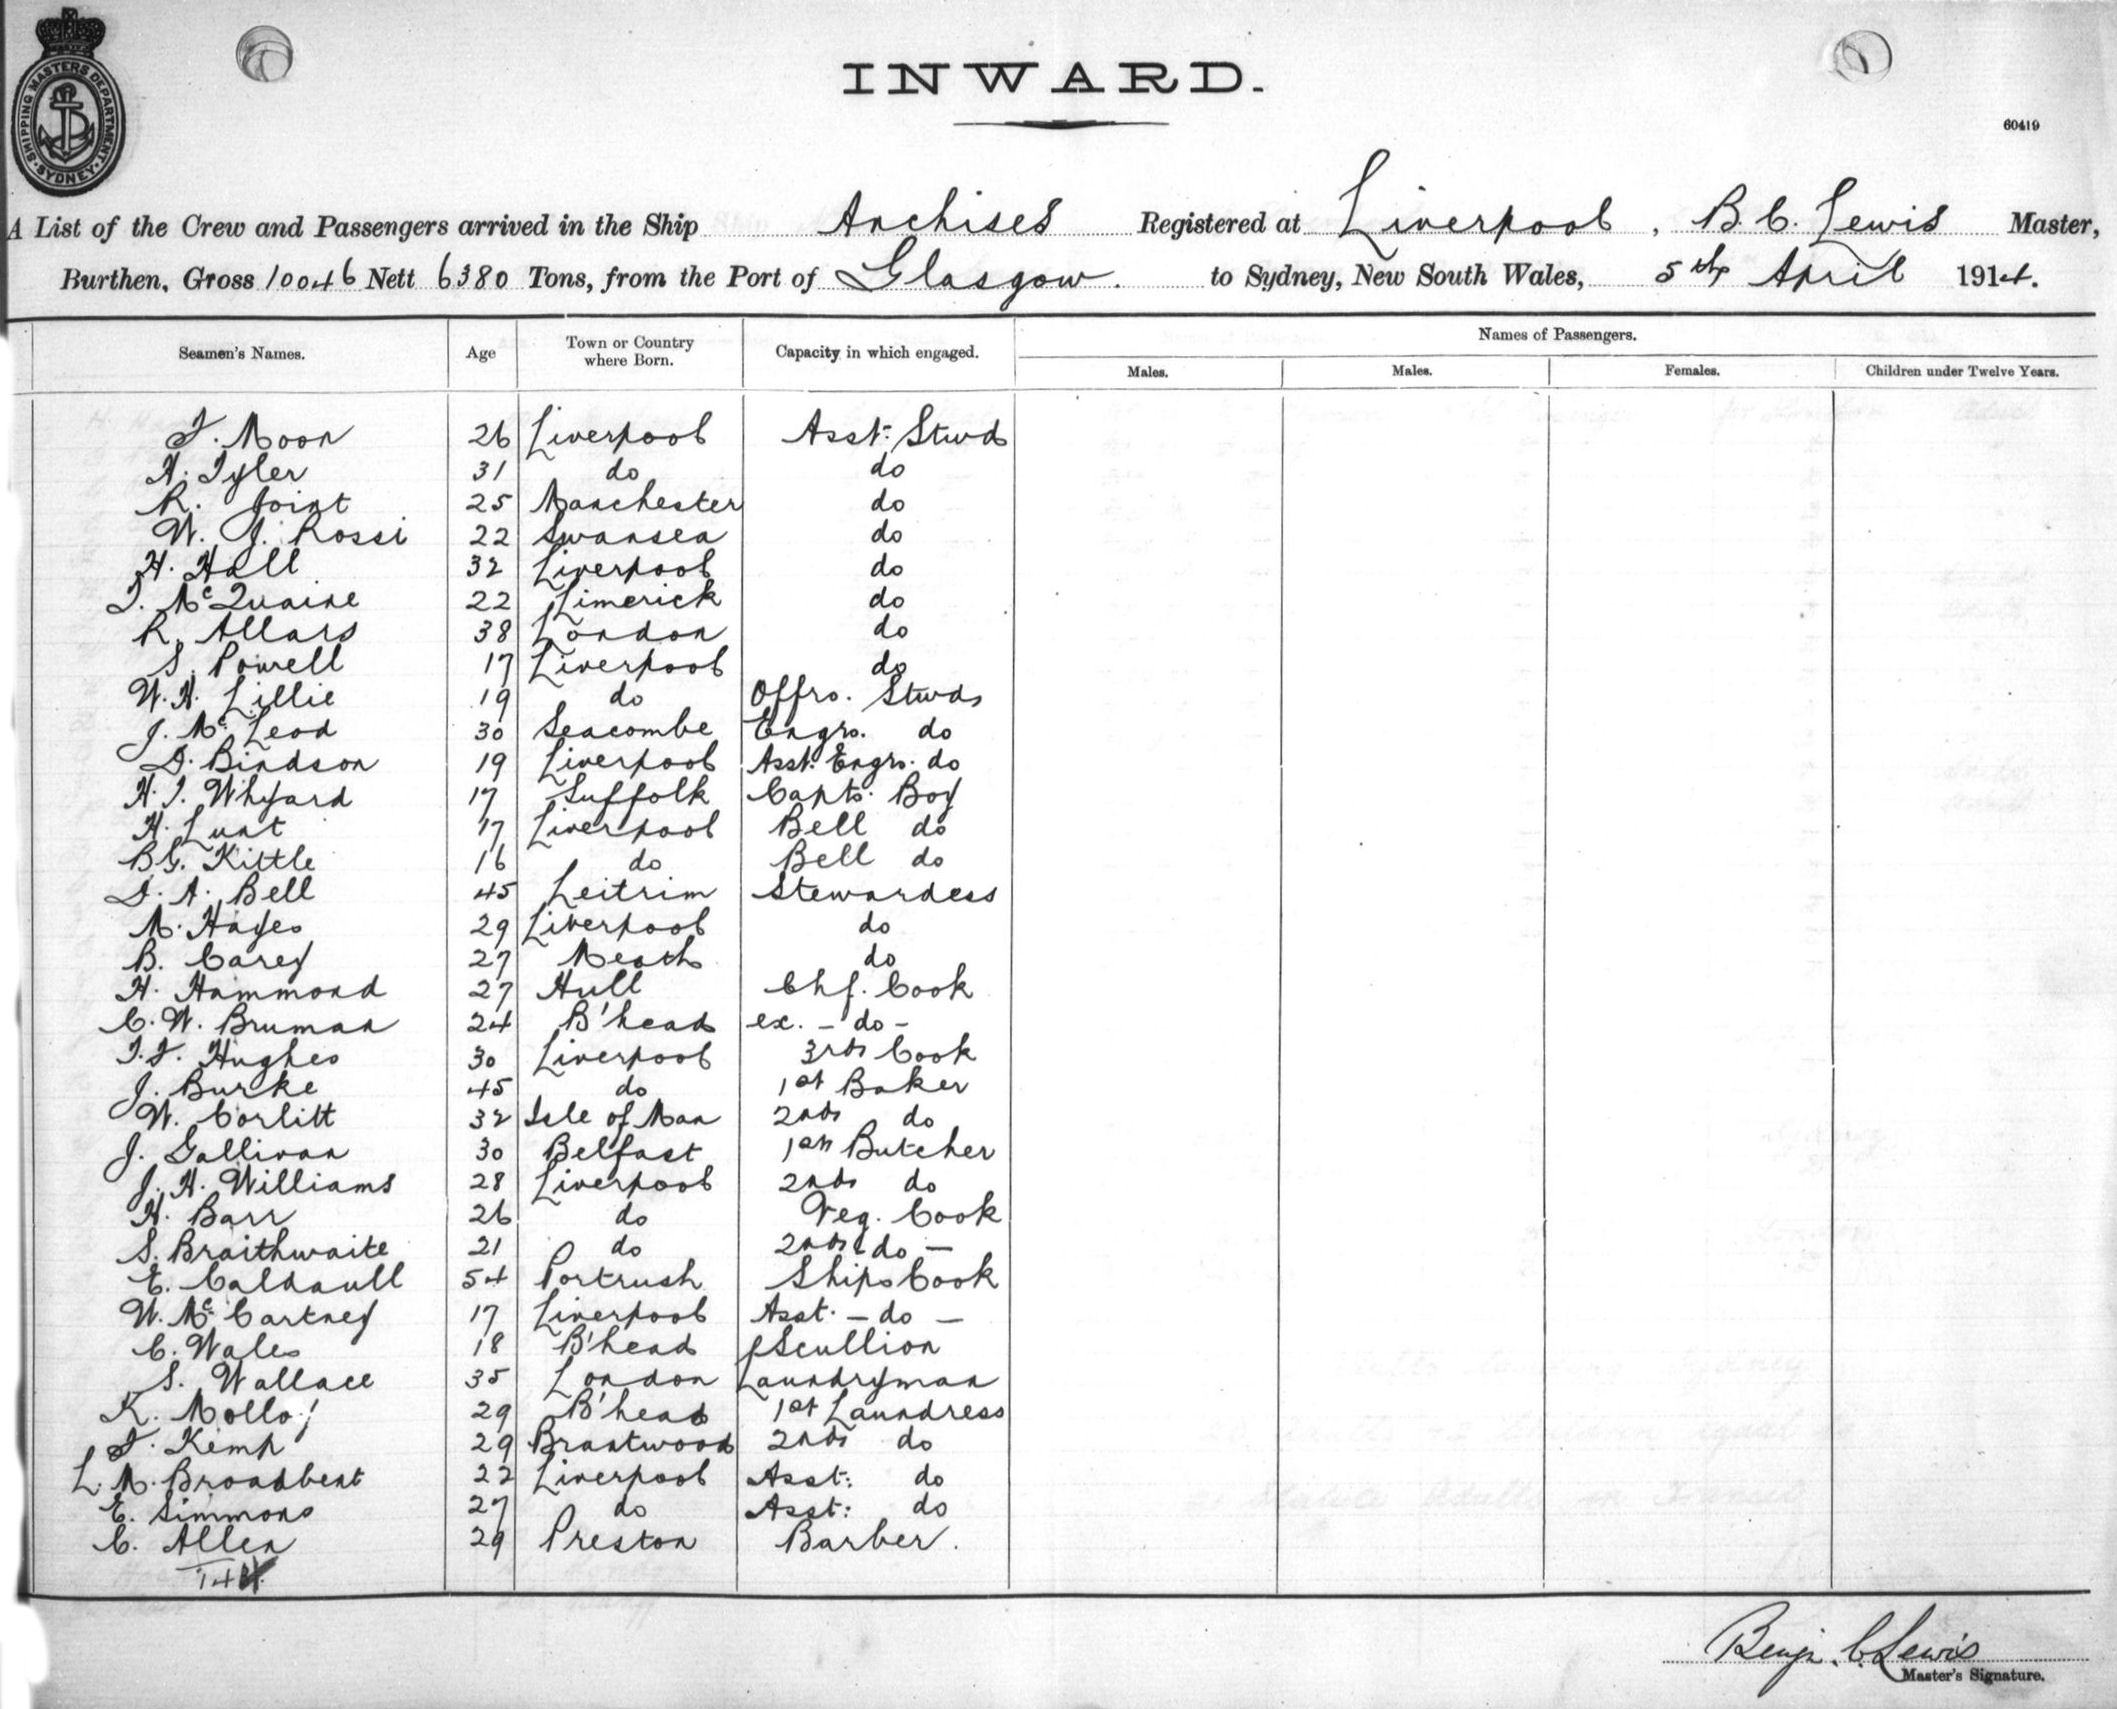 SHIPPING MASTERS DEPARTMENT SYDNEY
INWARD.
60419
A List of the Crew and Passengers arrived in the Ship Anchises Registered at Liverpool, B. C. Lewis Master,
Burthen, Gross 10046 Nett 6380 Tons, from the Port of Glasgow. to Sydney, New South Wales, 5th April 1914.
Seamen's Names. Age Town or Country where Born. Capacity in which engaged. Names of Passengers.
Males. Males. Females. Children under Twelve Years.
J. Moon 26 Liverpool Asst. Stwd
H. Tyler 31 do do
R. Joint 25 Manchester do
W. J. Rossi 22 Swansea do
H. Hall 32 Liverpool do
T. McQuaine 22 Limerick do
R. Allars 38 London do
S. Powell 17 Liverpool do
W. H. Lillie 19 do Offrs. Stwd
J. McLeod 30 Seacombe Engrs. do
D. Bindson 19 Liverpool Asst. Engrs. do
H. T. Whyard 17 Suffolk Capts. Boy
H. Lunt 17 Liverpool Bell do
B. G. Kittle 16 do Bell do
A. Bell 45 Leitrim Stewardess
M. Hayes 29 Liverpool do
B. Carey 27 Meath do
H. Hammond 27 Hull Chf. Cook
C. W. Bruman 24 B'head ex. - do -
Hughes 30 Liverpool 3rd Cook
J. Burke 45 do 1st Baker
W. Corlitt 32 Isle of Man 2nd do
J. Gallivan 30 Belfast 1st Butcher
J. H. Williams 28 Liverpool 2nd do
H. Barr 26 do Veg. Cook
S. Braithwaite 21 do 2nd do -
E. Caldaull 54 Portrush Ships Cook
W. McCartney 17 Liverpool Asst. - do -
C. Wales 18 B'head Scullion
S. Wallace 35 London Laundryman
K. Molloy 29 B'head 1st Laundress
J. Kemp 29 Brantwood 2nd do
L. M. Broadbent 22 Liverpool Asst: do
E. Simmons 27 do Asst: do
C. Allen 29 Preston Barber.
Benj. C. Lewis
Master's Signature.